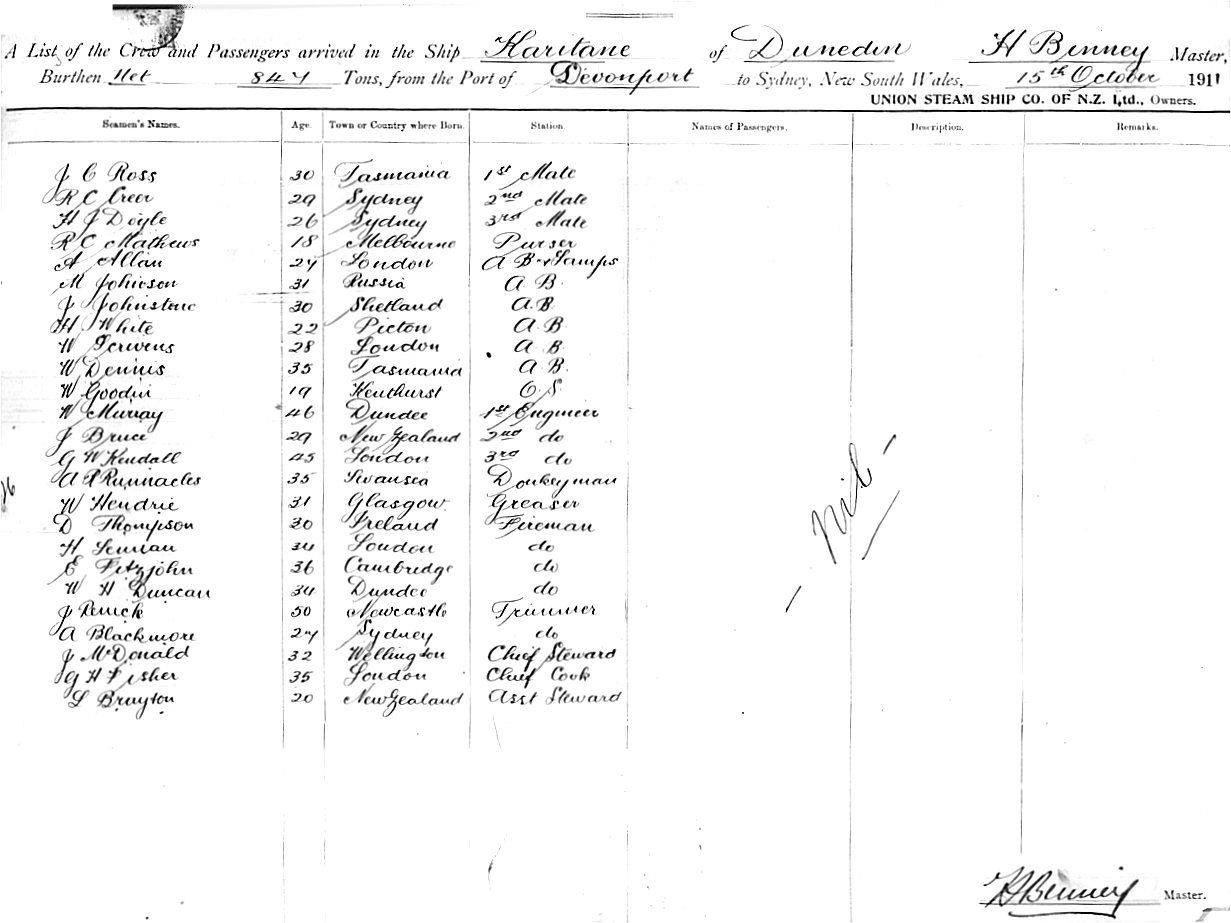 A List of the Crew and Passengers arrived in the Ship Karitane of Dunedin H Binney Master,
Burthen Net 847 Tons, from the Port of Devonport to Sydney, New South Wales, 15th October 1911
UNION STEAM SHIP CO. OF N.Z. Ltd., Owners.
Seamen's Names. Age. Town or Country where Born. Station. Names of Passengers. Description. Remarks.
J C Ross 30 Tasmania 1st Mate
R C Creer 29 Sydney 2nd Mate
H J Doyle 26 Sydney 3rd Mate
R C Mathews 18 Melbourne Purser
A Allan 27 London A B & Lamps
M Johnson 31 Russia A B.
J Johnstone 30 Shetland A.B.
H White 22 Picton A B.
W Scrivens 28 London A B.
W Dennis 35 Tasmania A B.
W Goodin 19 Kenthurst O.S
W Murray 46 Dundee 1st Engineer
J Bruce 29 New Zealand 2nd do
G W Kendall 45 London 3rd do
A Runnacles 35 Swansea Donkeyman
W Hendrie 31 Glasgow. Greaser
D Thompson 30 Ireland Fireman
H 34 London do
E Fitzjohn 36 Cambridge do
W H Duncan 34 Dundee do
J Renick 50 Newcastle Trimmer
A Blackmore 27 Sydney do
J McDonald 32 Wellington Chief Steward
G H Fisher 35 London Chief Cook
L Brayton 20 New Zealand Asst Steward
- Nil -
16
H Binney Master.